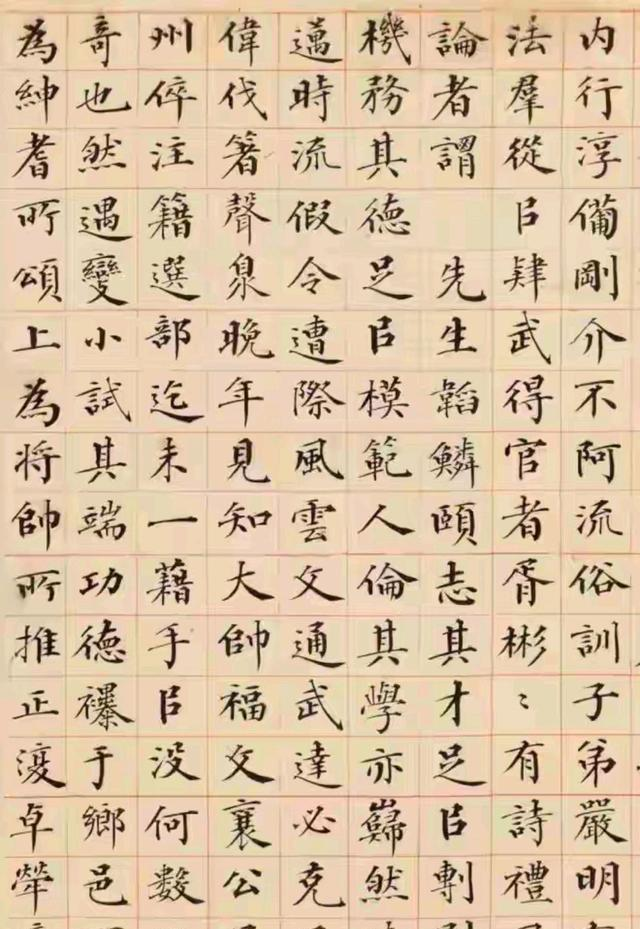 内行淳備剛介不阿流俗訓子弟嚴明
法羣從㠯肄武得官者胥彬〻有詩禮
論者謂 先生韜鱗頤志其才足㠯剸
機務其德足㠯模範人倫其學亦巋然
邁時流假令遭際風雲文通武達必克
偉伐箸聲臮晚年見知大帥福文襄公
州倅注籍選部迄未一藉手㠯没何數
奇也然遇變小試其端功德襮于鄉邑
為紳耆所頌上為將帥所推正復卓犖